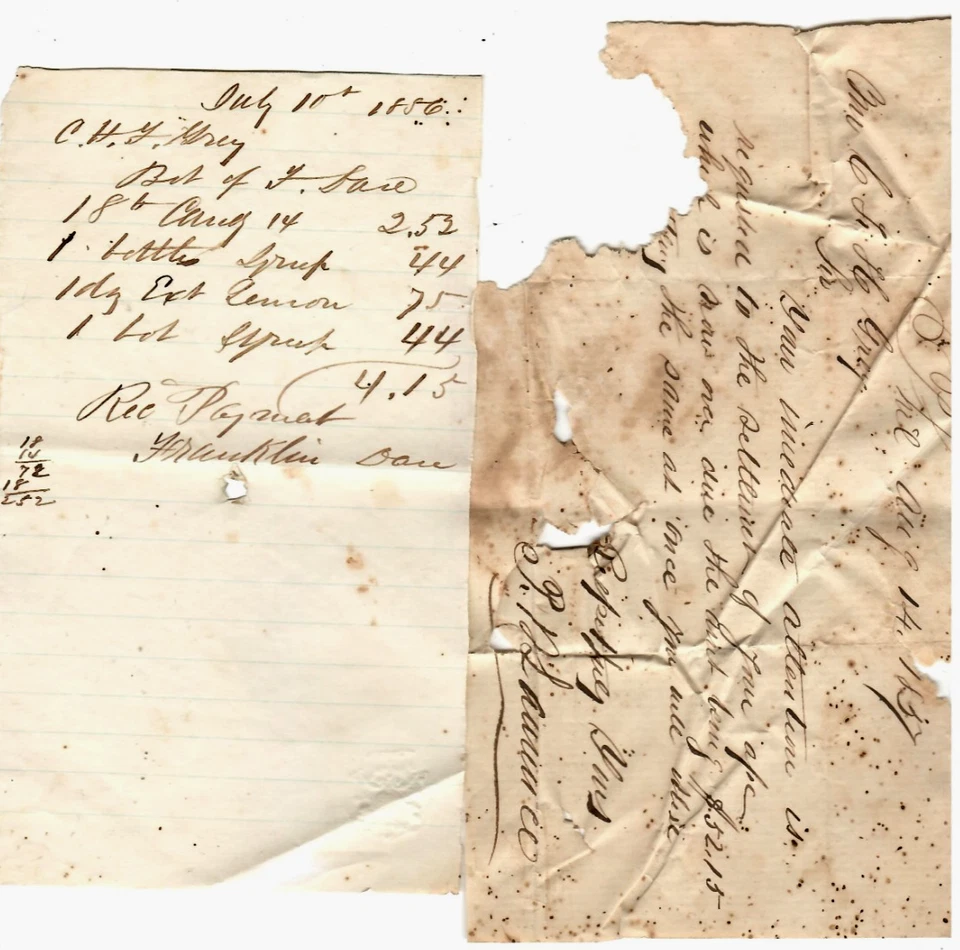 July 10th 1886
C. H. F. Grey
Bot of F. Dare
18 lb Candy 14 2.52
1 bottle Syrup 44
1 dz Ext Lemon 75
1 bot Syrup 44
4.15
Rec Payment
Franklin Dare
18
14
72
18
252
Aug 14, 187
Mr C. F. H. Grey
Sir
Your imediate attention is
requested to the settlement of your a/c
which is now over due the amt being $52.15
the same at once you will oblige
Respctfy Yours
Lawrence